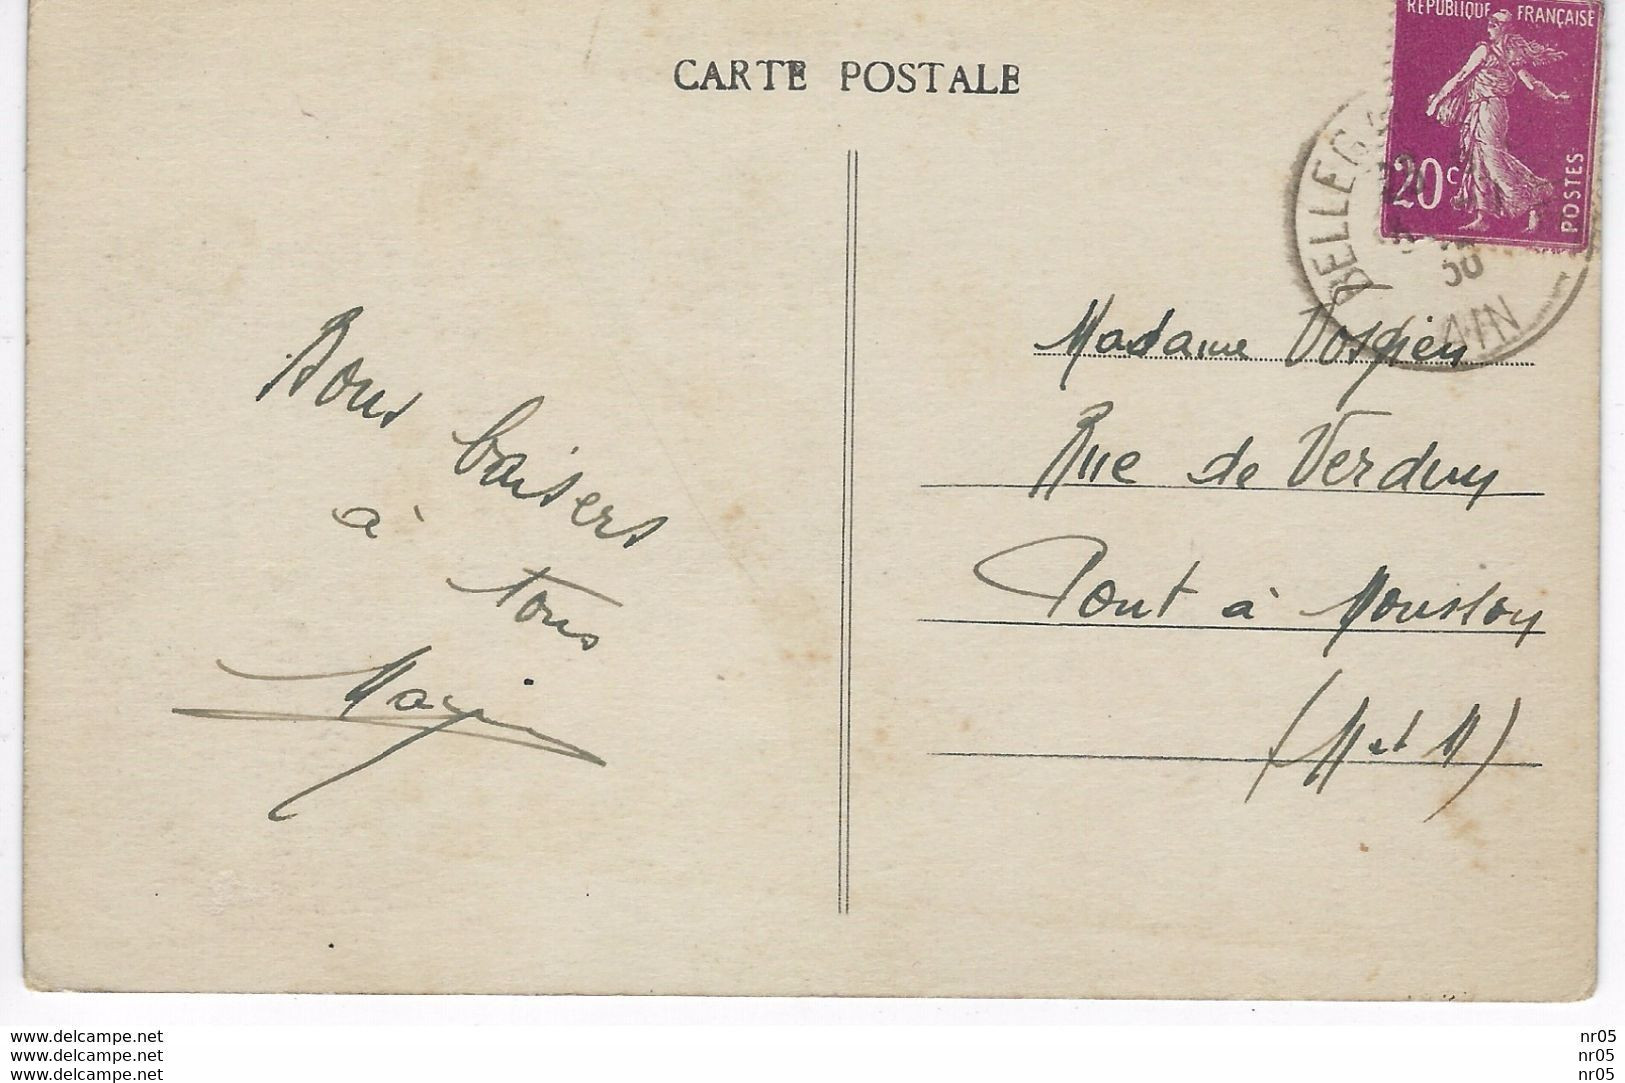 CARTE POSTALE
REPUBLIQUE FRANÇAISE
20c
POSTES
BELLEG
AIN
Bons baisers
à
tous
Madame Vosgien
Rue de Verdun
Pont à Mousson
(M et M)
www.delcampe.net
www.delcampe.net
www.delcampe.net
nr05
nr05
nr05